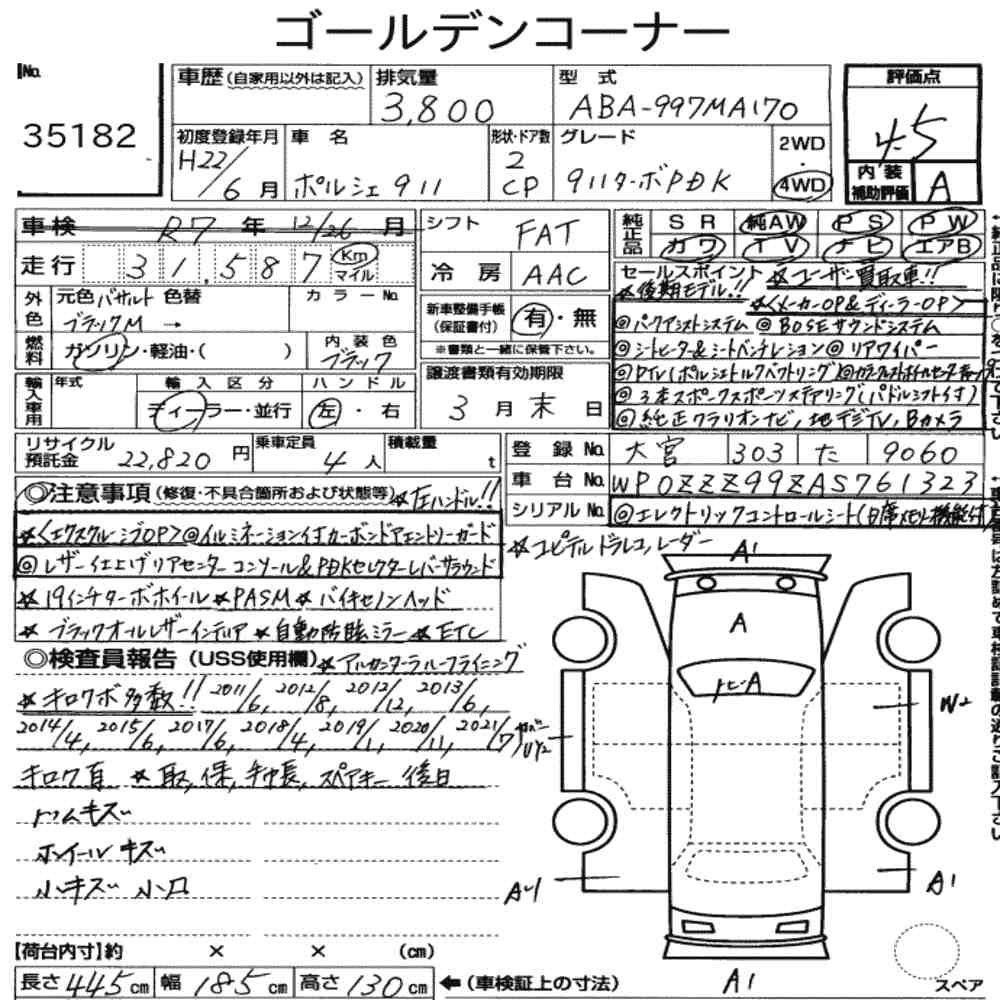 ゴールデンコーナー
No.
35182
車歴 (自家用以外は記入)
排気量
3,800
型式
ABA-997MA170
評価点
4.5
初度登録年月
H22/6月
車名
ポルシェ911
形状・ドア数
2
CP
グレード
911ターボPDK
2WD
・
4WD
内装
補助評価
A
車検 R7年 12/26月
シフト
FAT
純正品
SR 純AW PS PW
カワ TV ナビ エアB
走行 31,587 Km
マイル
冷房
AAC
セールスポイント ☆ユーザー買取車!!
☆後期モデル!! ☆<メーカーOP&ディーラーOP>
外色
元色 バサルト 色替
ブラックM →
カラーNo.
新車整備手帳
(保証書付)
有・無
※書類と一緒に保管下さい。
◎パークアシストシステム ◎BOSEサウンドシステム
◎シートヒーター&シートベンチレーション ◎リアワイパー
燃料
ガソリン・軽油・( )
内装色
ブラック
譲渡書類有効期限
3月末日
◎PTV(ポルシェトルクベクトリング)
◎3本スポークスポーツステアリング(パドルシフト付)
◎純正クラリオンナビ, 地デジTV, Bカメラ
輸入車用
年式
輸入区分
ディーラー・並行
ハンドル
左・右
リサイクル
預託金 22,820円
乗車定員
4人
積載量
t
登録No. 大宮 303 た 9060
車台No. WP0ZZZ99ZAS761323
シリアルNo. ◎エレクトリックコントロールシート(日常メモリー機能付)
◎注意事項 (修復・不具合箇所および状態等) ☆左ハンドル!!
☆<エクスクルーシブOP> ◎イルミネーション付カーボンドアエントリーガード
◎レザー仕上げリアセンターコンソール&PDKセレクターレバーサラウンド
☆コピテルドラレコ, レーダー
☆19インチターボホイール ☆PASM ☆バイキセノンヘッド
☆ブラックオールレザーインテリア ☆自動防眩ミラー ☆ETC
◎検査員報告 (USS使用欄) ☆アルカンターラルーフライニング
☆キロクボ多数!! 2011/6, 2012/8, 2012/12, 2013/6,
2014/4, 2015/6, 2017/6, 2018/4, 2019/1, 2020/11, 2021/7
キロク有 ☆取, 保, 手帳, スペアキー 後日
ドムキズ
ホイールキズ
小キズ 小凹
A1
A
トビーA
W2
UY2
A1
A1
A1
【荷台内寸】約 × × (cm)
長さ 445cm 幅 185cm 高さ 130cm
←(車検証上の寸法)
スペア